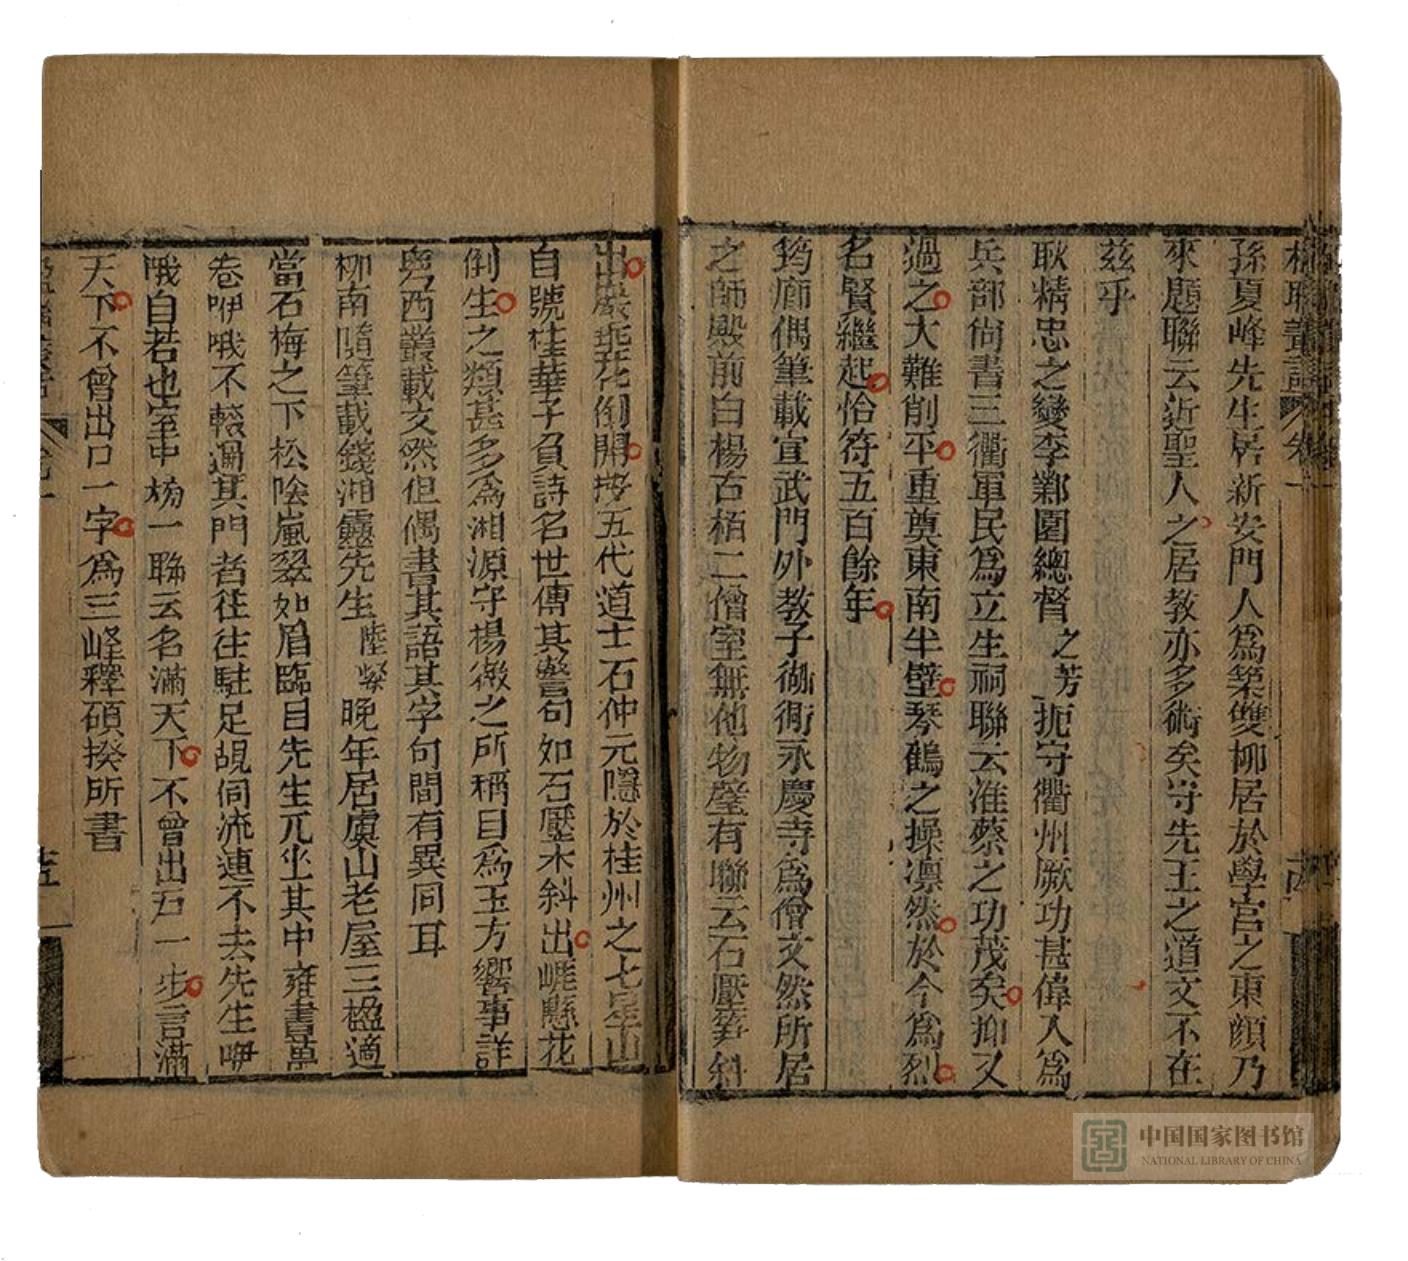 孫夏峰先生居新安門人爲築雙柳居於學宮之東顔乃
來題聯云近聖人之居教亦多術矣守先王之道文不在
茲乎
耿精忠之變李鄴園總督之芳扼守衢州厥功甚偉入爲
兵部尙書三衢軍民爲立生祠聯云淮蔡之功茂矣抑又
過之大難削平重奠東南半壁琴鶴之操凛然於今爲烈
名賢繼起恰符五百餘年
筠廊偶筆載宣武門外教子衚衕永慶寺爲僧文然所居
之師殿前白楊古栢二僧室無他物壁有聯云石壓筍斜
出巖垂花倒開按五代道士石仲元隱於桂州之七星山
自號桂華子負詩名世傳其警句如石壓木斜出崖懸花
倒生之類甚多爲湘源守楊徽之所稱目爲玉方響事詳
粤西叢載文然但偶書其語其字句間有異同耳
柳南隨筆載錢湘靈先生陸燦晚年居虞山老屋三楹適
當石梅之下松陰嵐翠如眉臨目先生兀坐其中雍書萬
卷咿哦不輟過其門者往往駐足覘伺流連不去先生咿
哦自若也室中榜一聯云名滿天下不曾出戶一步言滿
天下不曾出口一字爲三峰釋碩揆所書
中国国家图书馆
NATIONAL LIBRARY OF CHINA